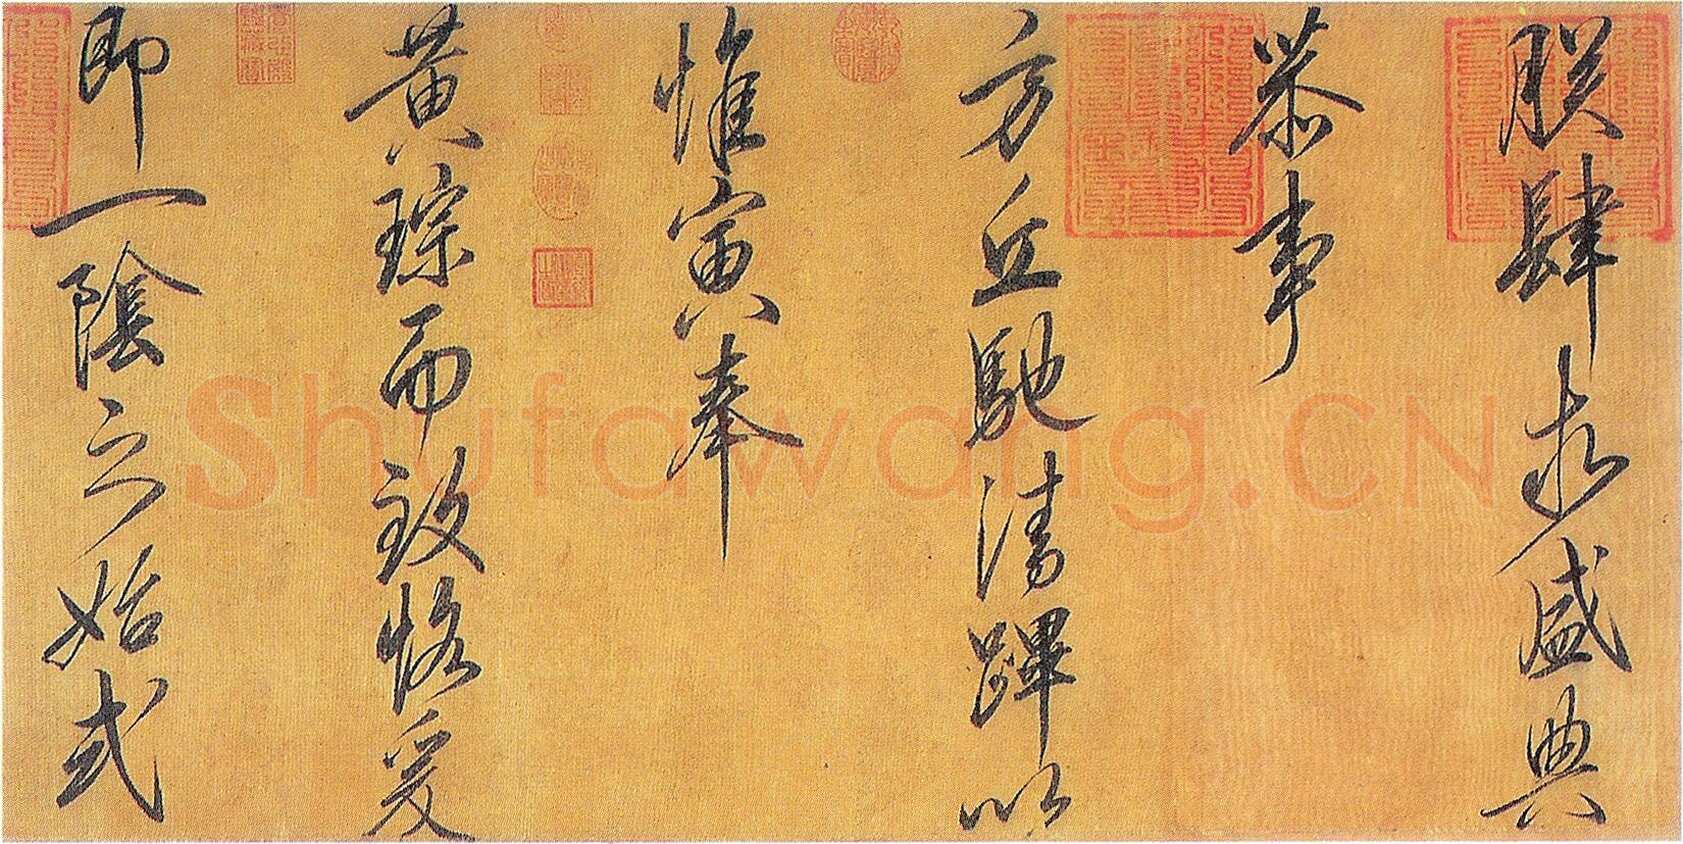 朕肆求盛典
恭事
方丘馳清蹕以
惟寅奉
黄琮而致恪爰
即一陰之始式
Shufawang.CN